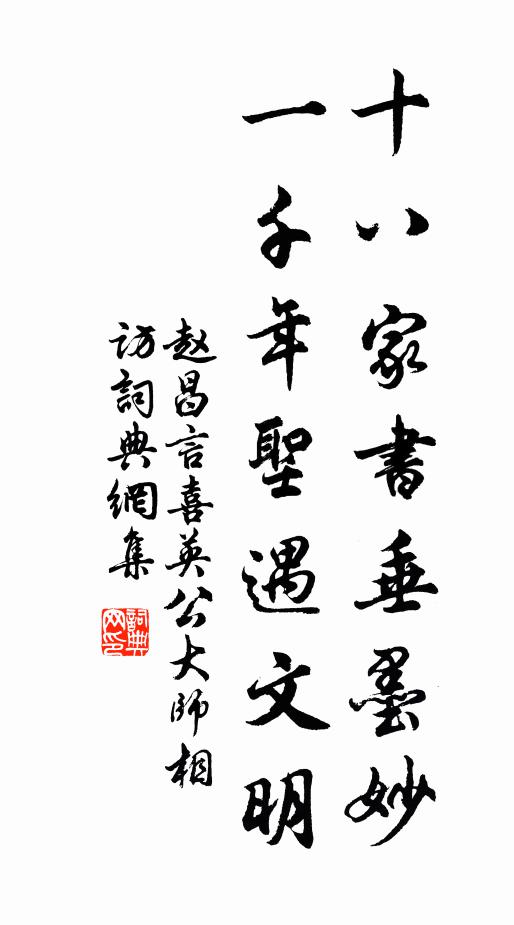 十八家書垂墨妙
一千年聖遇文明
赵昌言喜英公大師相
訪詞典網集
詞典
网印